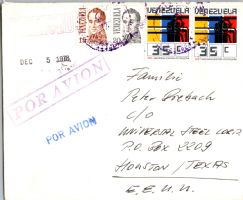 VENEZUELA
VENEZUELA
VENEZUELA
VENEZUELA
35 c
35 c
DEC 5 1978
POR AVION
POR AVION
Familie
Peter
c/o
UNIVERSAL STEEL
P.O. BOX 2209
HOUSTON / TEXAS
E.E.U.U.